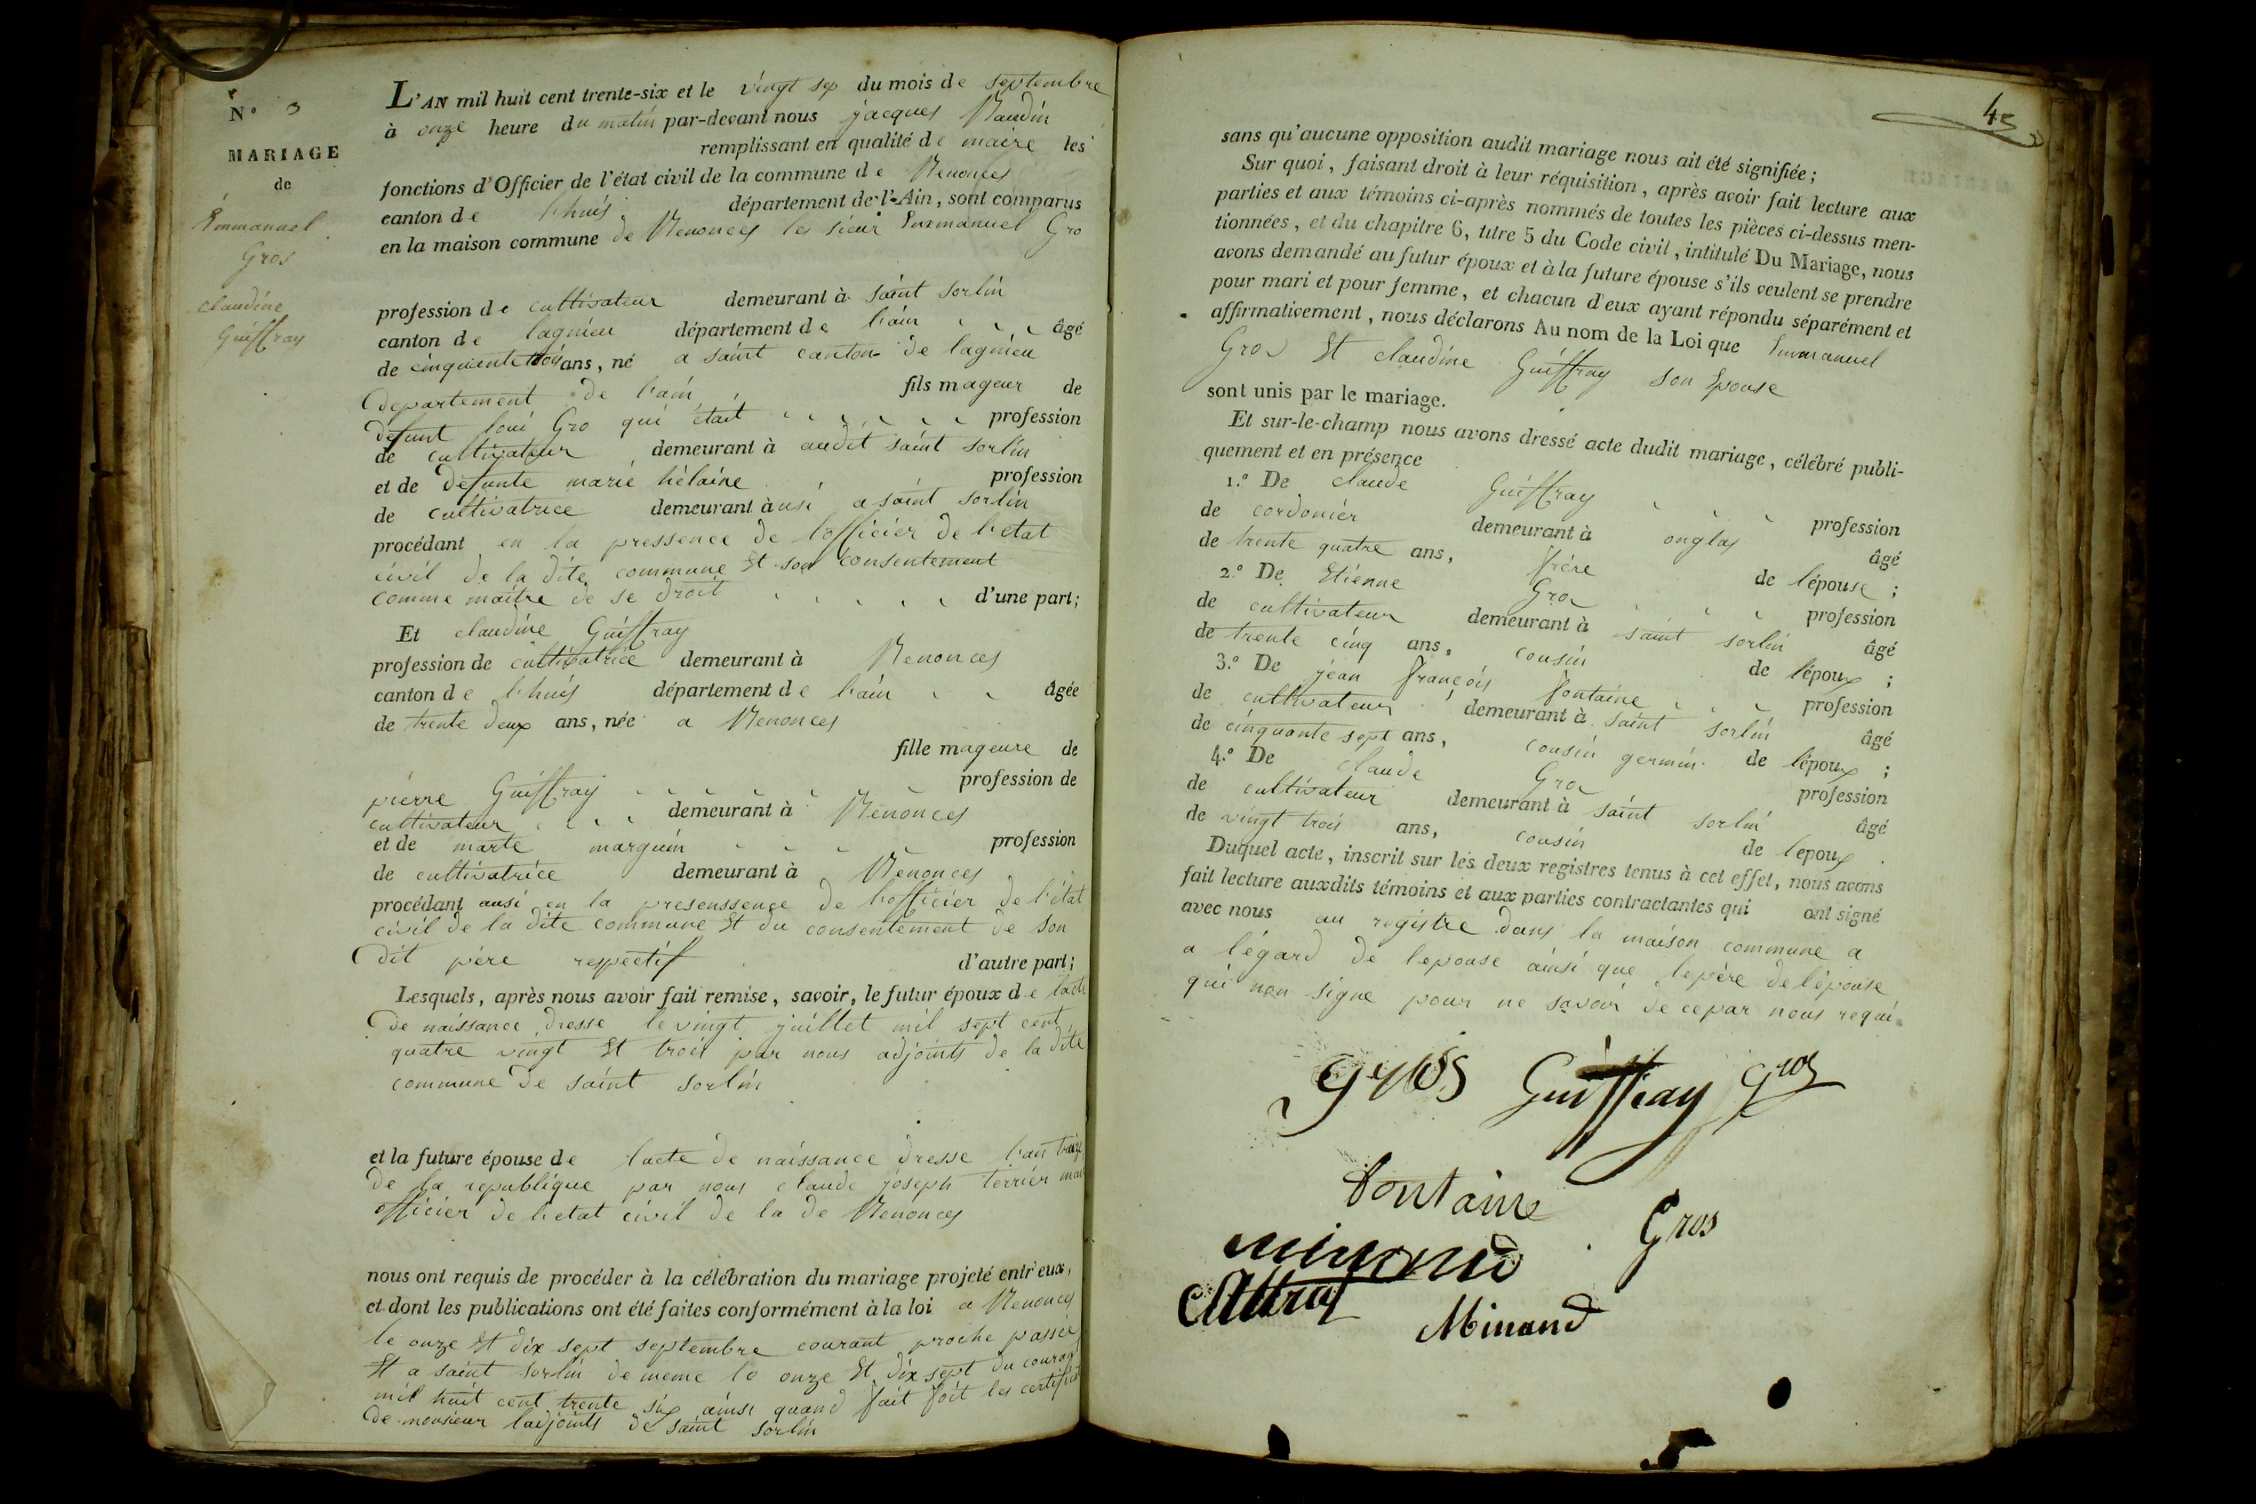 N.° 3
MARIAGE
de
Emmanuel
Gros
claudine
Guiffray
L'AN mil huit cent trente-six et le vingt six du mois de septembre
à onze heure du matin par-devant nous jacques Naudin
remplissant en qualité de maire les
fonctions d'Officier de l'état civil de la commune de Benonces
canton de l'huis département de l'Ain, sont comparus
en la maison commune de Benonces les sieur Emmanuel Gro
profession de cultivateur demeurant à saint sorlin
canton de lagnieu département de l'ain âgé
de cinquente trois ans, né a saint canton de lagnieu
departement de l'ain fils mageur de
défunt loui Gro qui était profession
de cultivateur demeurant à audit saint sorlin
et de défunte marie hélaine profession
de cultivatrice demeurant à usi a saint sorlin
procédant en la pressence de l'officier de l'état
civil de la dite commune Et son consentement
comme maitre de se droit d'une part;
Et claudine Guiffray
profession de cultivatrice demeurant à Benonces
canton de l'huis département de l'ain âgée
de trente deux ans, née a Benonces
fille mageure de
pierre Guiffray profession de
cultivateur demeurant à Benonces
et de marte marguin profession
de cultivatrice demeurant à Benonces
procédant ausi en la presenssence de l'officier de l'état
civil de la dite commune Et du consentement de son
dit père respectif d'autre part;
Lesquels, après nous avoir fait remise, savoir, le futur époux de lacte
de naissance dresse le vingt juillet mil sept cent
quatre vingt Et trois par nous adjoints de la dite
commune de saint sorlin
et la future épouse de lacte de naissance dresse l'an treize
de la republique par nous claude joseph terrier maire
officier de l'etat civil de la de Benonces
nous ont requis de procéder à la célébration du mariage projeté entr'eux,
et dont les publications ont été faites conformément à la loi a Benonces
le onze Et dix sept septembre courant proche passée
Et a saint sorlin de meme le onze Et dix sept du courant
mil huit cent trente six ainsi quand fait foit les certificat
de monsieur ladjoints de saint sorlin
43
sans qu'aucune opposition audit mariage nous ait été signifiée;
Sur quoi, faisant droit à leur réquisition, après avoir fait lecture aux
parties et aux témoins ci-après nommés de toutes les pièces ci-dessus men-
tionnées, et du chapitre 6, titre 5 du Code civil, intitulé Du Mariage, nous
avons demandé au futur époux et à la future épouse s'ils veulent se prendre
pour mari et pour femme, et chacun d'eux ayant répondu séparément et
affirmativement, nous déclarons Au nom de la Loi que Emmanuel
Gros Et claudine Guiffray son Epouse
sont unis par le mariage.
Et sur-le-champ nous avons dressé acte dudit mariage, célébré publi-
quement et en présence
1.° De claude Guiffray profession
de cordonier demeurant à onglas âgé
de trente quatre ans, frère de lépouse;
2.° De Etienne Gro profession
de cultivateur demeurant à saint sorlin âgé
de trente cinq ans, cousin de lépoux;
3.° De jean françois fontaine profession
de cultivateur demeurant à saint sorlin âgé
de cinquante sept ans, cousin germin de lépoux;
4.° De claude Gro profession
de cultivateur demeurant à saint sorlin âgé
de vingt trois ans, cousin de lepoux.
Duquel acte, inscrit sur les deux registres tenus à cet effet, nous avons
fait lecture auxdits témoins et aux parties contractantes qui ont signé
avec nous au registre dans la maison commune a
a légard de lepouse ainsi que le père de lépouse
qui non signe pour ne savoir de ce par nous requi
gros Guiffray Gros
fontaine
Gros
minand
Minand